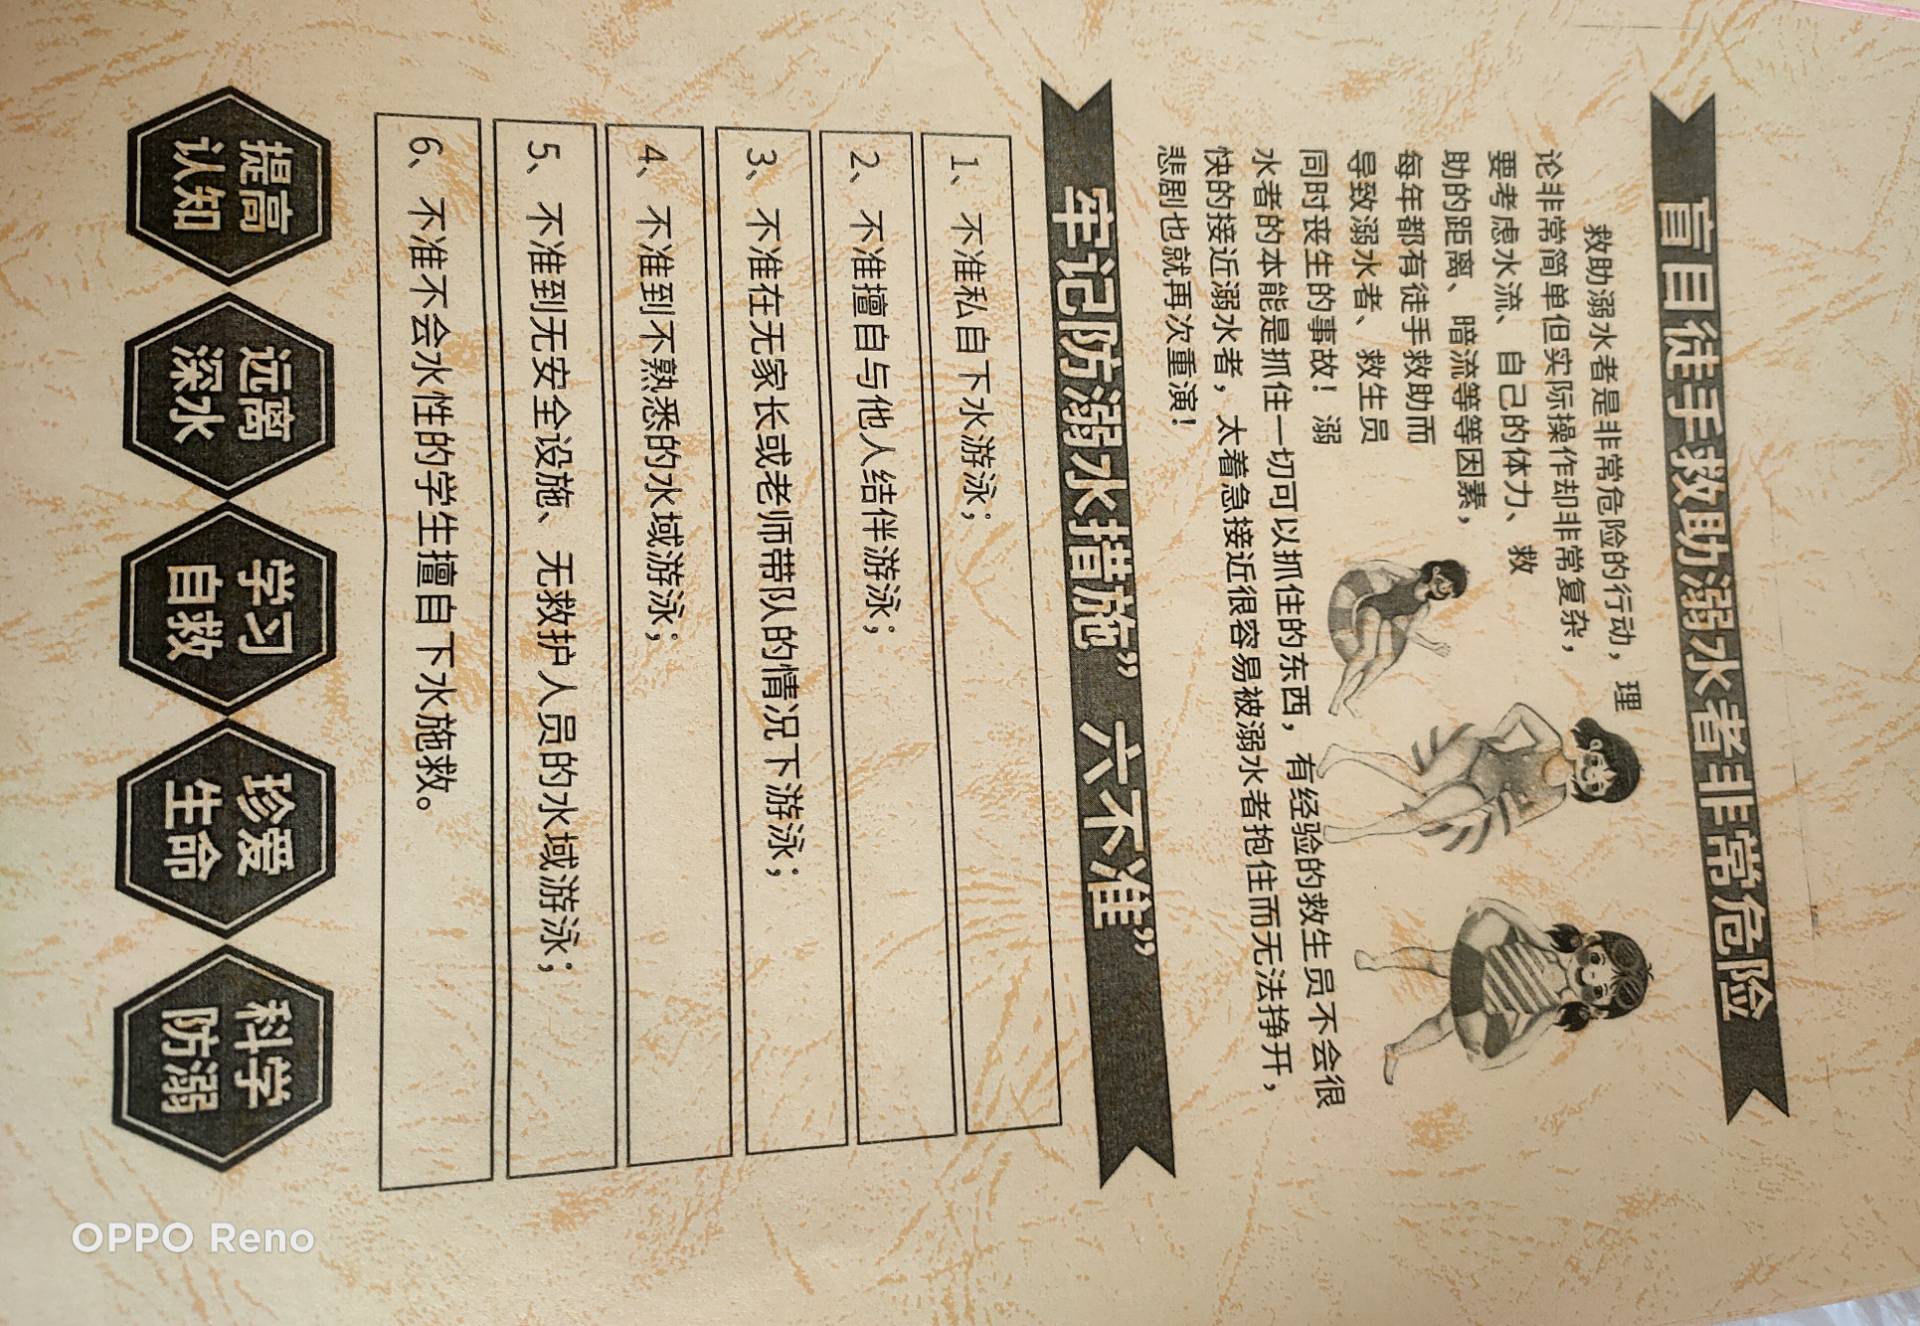 盲目徒手救助溺水者非常危险
救助溺水者是非常危险的行动，理
论非常简单但实际操作却非常复杂，
要考虑水流、自己的体力、救
助的距离、暗流等等因素，
每年都有徒手救助而
导致溺水者、救生员
同时丧生的事故！溺
水者的本能是抓住一切可以抓住的东西，有经验的救生员不会很
快的接近溺水者，太着急接近很容易被溺水者抱住而无法挣开，
悲剧也就再次重演！
牢记防溺水措施”六不准”
1、不准私自下水游泳；
2、不准擅自与他人结伴游泳；
3、不准在无家长或老师带队的情况下游泳；
4、不准到不熟悉的水域游泳；
5、不准到无安全设施、无救护人员的水域游泳；
6、不准不会水性的学生擅自下水施救。
提高
认知
远离
深水
学习
自救
珍爱
生命
科学
防溺
OPPO Reno